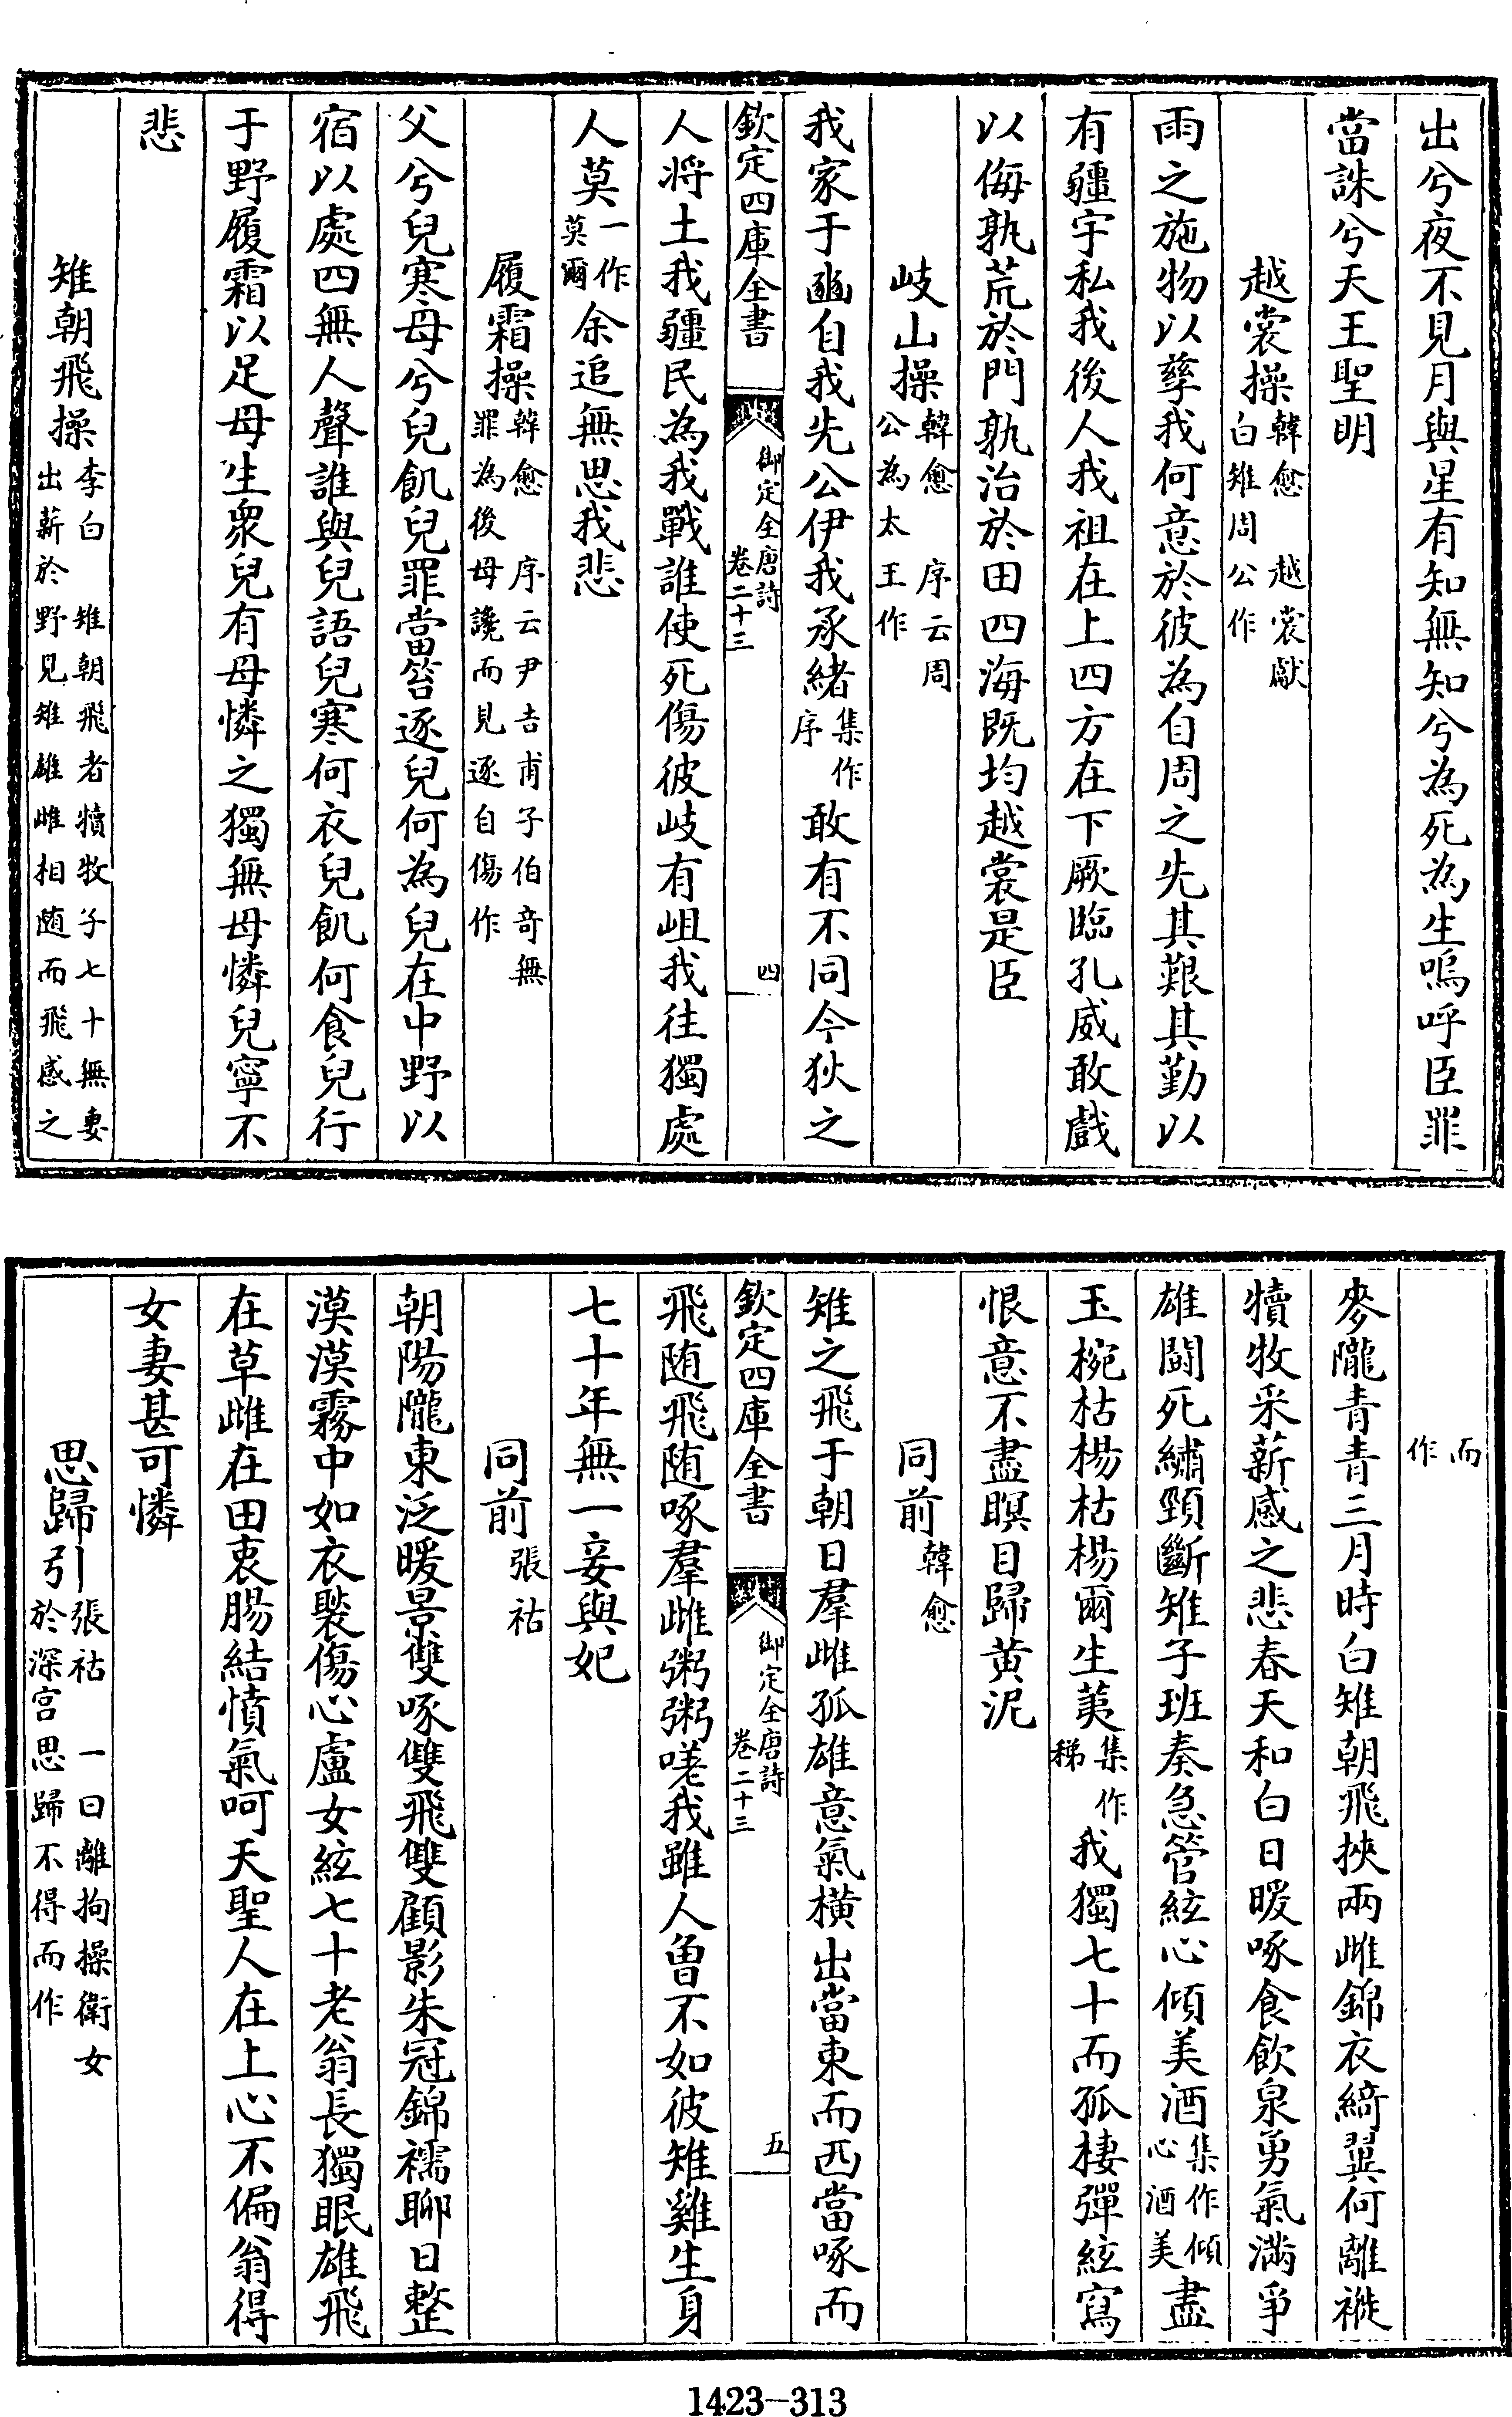 出兮夜不見月與星有知無知兮為死為生嗚呼臣罪
當誅兮天王聖明
越裳操韓愈　越裳獻白雉周公作
雨之施物以孳我何意於彼為自周之先其艱其勤以
有疆宇私我後人我祖在上四方在下厥臨孔威敢戲
以侮孰荒於門孰治於田四海既均越裳是臣
岐山操韓愈　序云周公為太王作
我家于豳自我先公伊我承緒集作序敢有不同今狄之
欽定四庫全書　御定全唐詩卷二十三　四
人將土我疆民為我戰誰使死傷彼岐有岨我往獨處
人莫一作莫爾余追無思我悲
履霜操韓愈　序云尹吉甫子伯奇無罪為後母讒而見逐自傷作
父兮兒寒母兮兒飢兒罪當笞逐兒何為兒在中野以
宿以處四無人聲誰與兒語兒寒何衣兒飢何食兒行
于野履霜以足母生衆兒有母憐之獨無母憐兒寧不
悲
雉朝飛操李白　雉朝飛者犢牧子七十無妻出薪於野見雉雄雌相随而飛感之
而作
麥隴青青三月時白雉朝飛挾兩雌錦衣綺翼何離褷
犢牧采薪感之悲春天和白日暖啄食飲泉勇氣滿爭
雄鬭死繡頸斷雉子班奏急管絃心傾美酒集作傾心酒美盡
玉椀枯楊枯楊爾生荑集作稊我獨七十而孤棲彈絃寫
恨意不盡瞑目歸黄泥
同前韓愈
雉之飛于朝日羣雌孤雄意氣橫出當東而西當啄而
欽定四庫全書　御定全唐詩卷二十三　五
飛随飛随啄羣雌粥粥嗟我雖人曾不如彼雉雞生身
七十年無一妾與妃
同前張祜
朝陽隴東泛暖景雙啄雙飛雙顧影朱冠錦襦聊日整
漠漠霧中如衣褧傷心盧女絃七十老翁長獨眠雄飛
在草雌在田衷腸結憤氣呵天聖人在上心不偏翁得
女妻甚可憐
思歸引張祜　一曰離拘操衛女於深宫思歸不得而作
1423-313